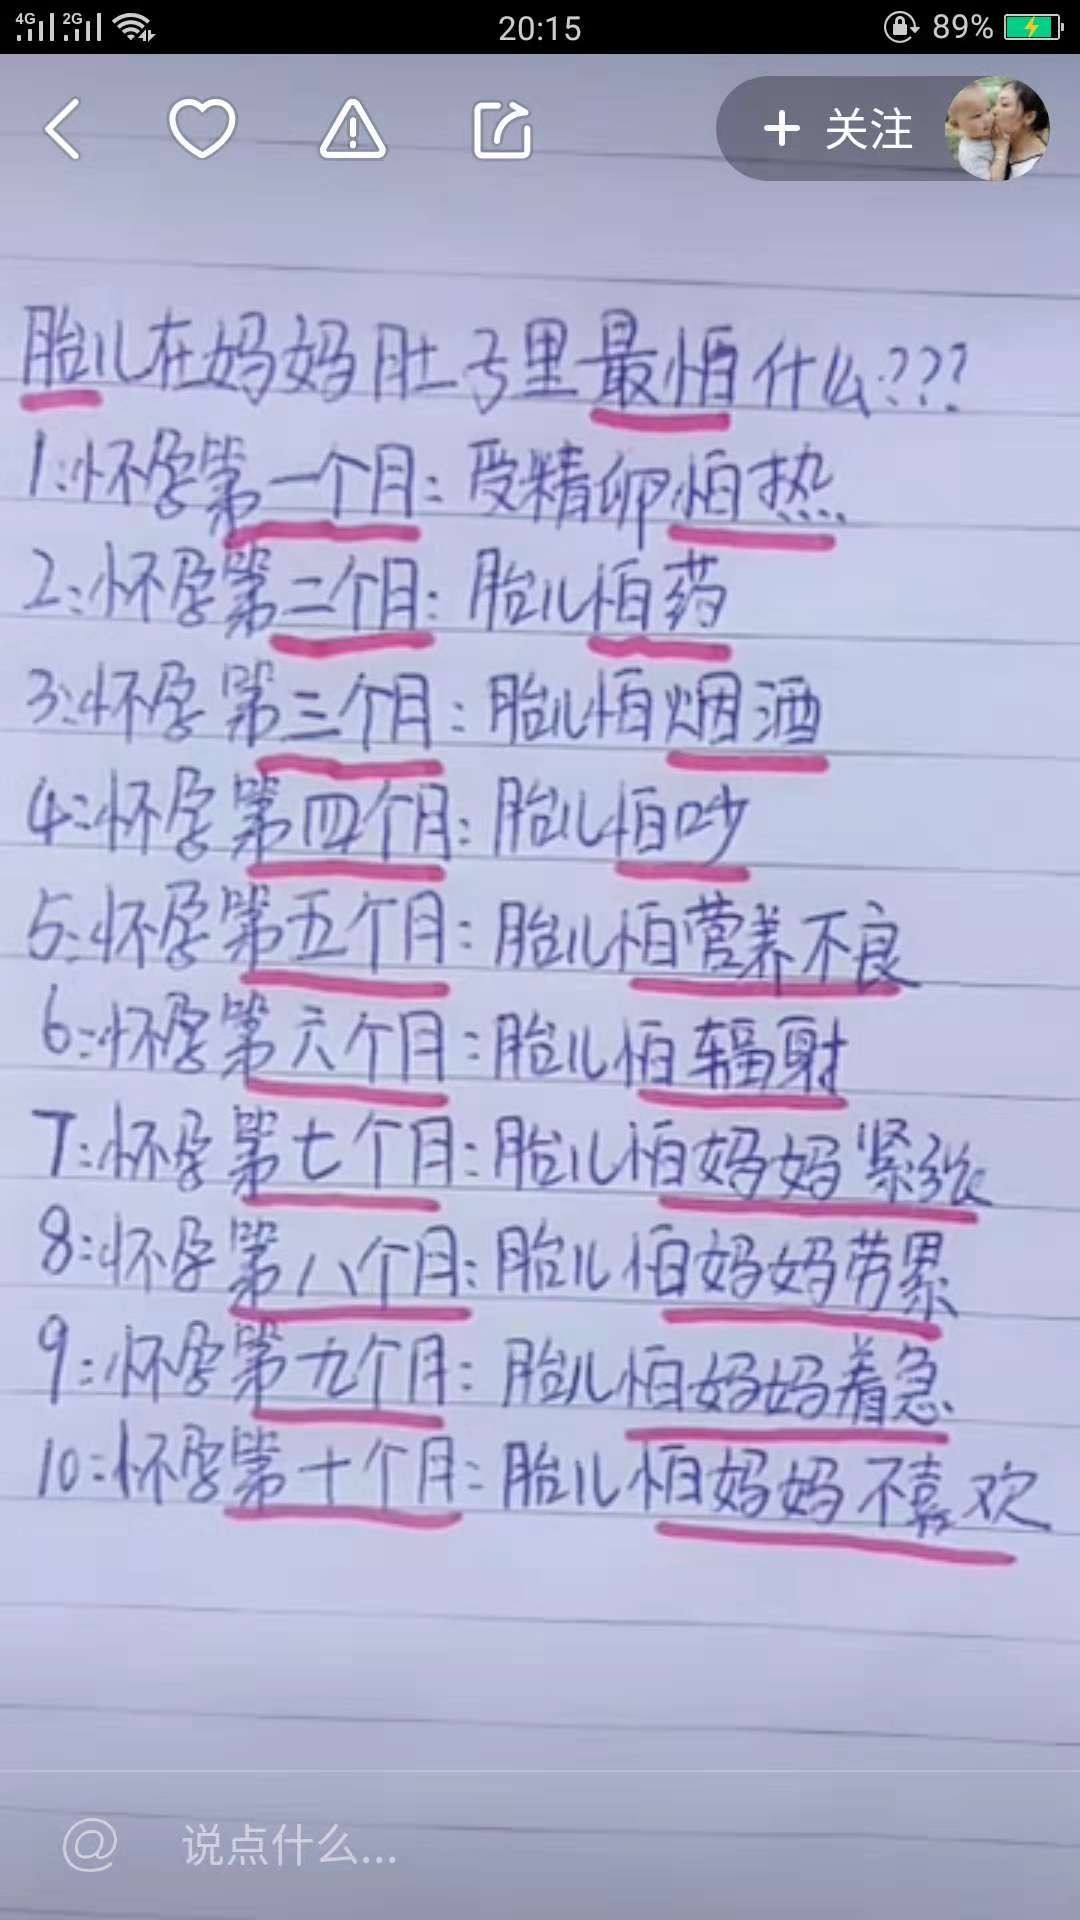 4G 2G 20:15 89%
+ 关注
胎儿在妈妈肚子里最怕什么???
1:怀孕第一个月:受精卵怕热
2:怀孕第二个月:胎儿怕药
3:怀孕第三个月:胎儿怕烟酒
4:怀孕第四个月:胎儿怕吵
5:怀孕第五个月:胎儿怕营养不良
6:怀孕第六个月:胎儿怕辐射
7:怀孕第七个月:胎儿怕妈妈紧张
8:怀孕第八个月:胎儿怕妈妈劳累
9:怀孕第九个月:胎儿怕妈妈着急
10:怀孕第十个月:胎儿怕妈妈不喜欢
@ 说点什么...